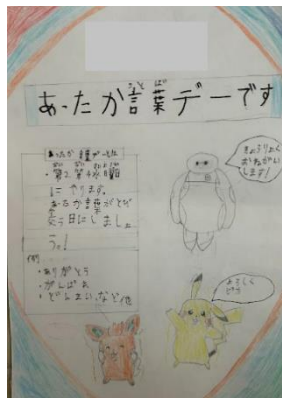 あったか言葉デーです
ことば
あったか言葉デーとは
・第2、第4水曜日
にやります。
あったか言葉がとび
交う日にしましょ
う。!
例
・ありがとう
・がんばれ
・どんまい、など他
きょうりょく
おねがい
します!
よろしく